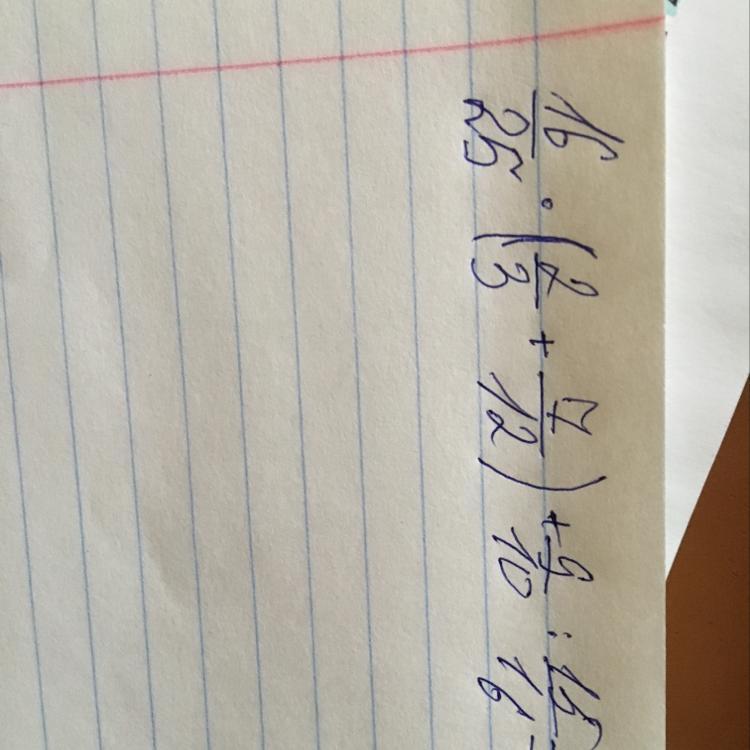 16/25 · (2/3 + 7/12) + 9/10 : 15/16